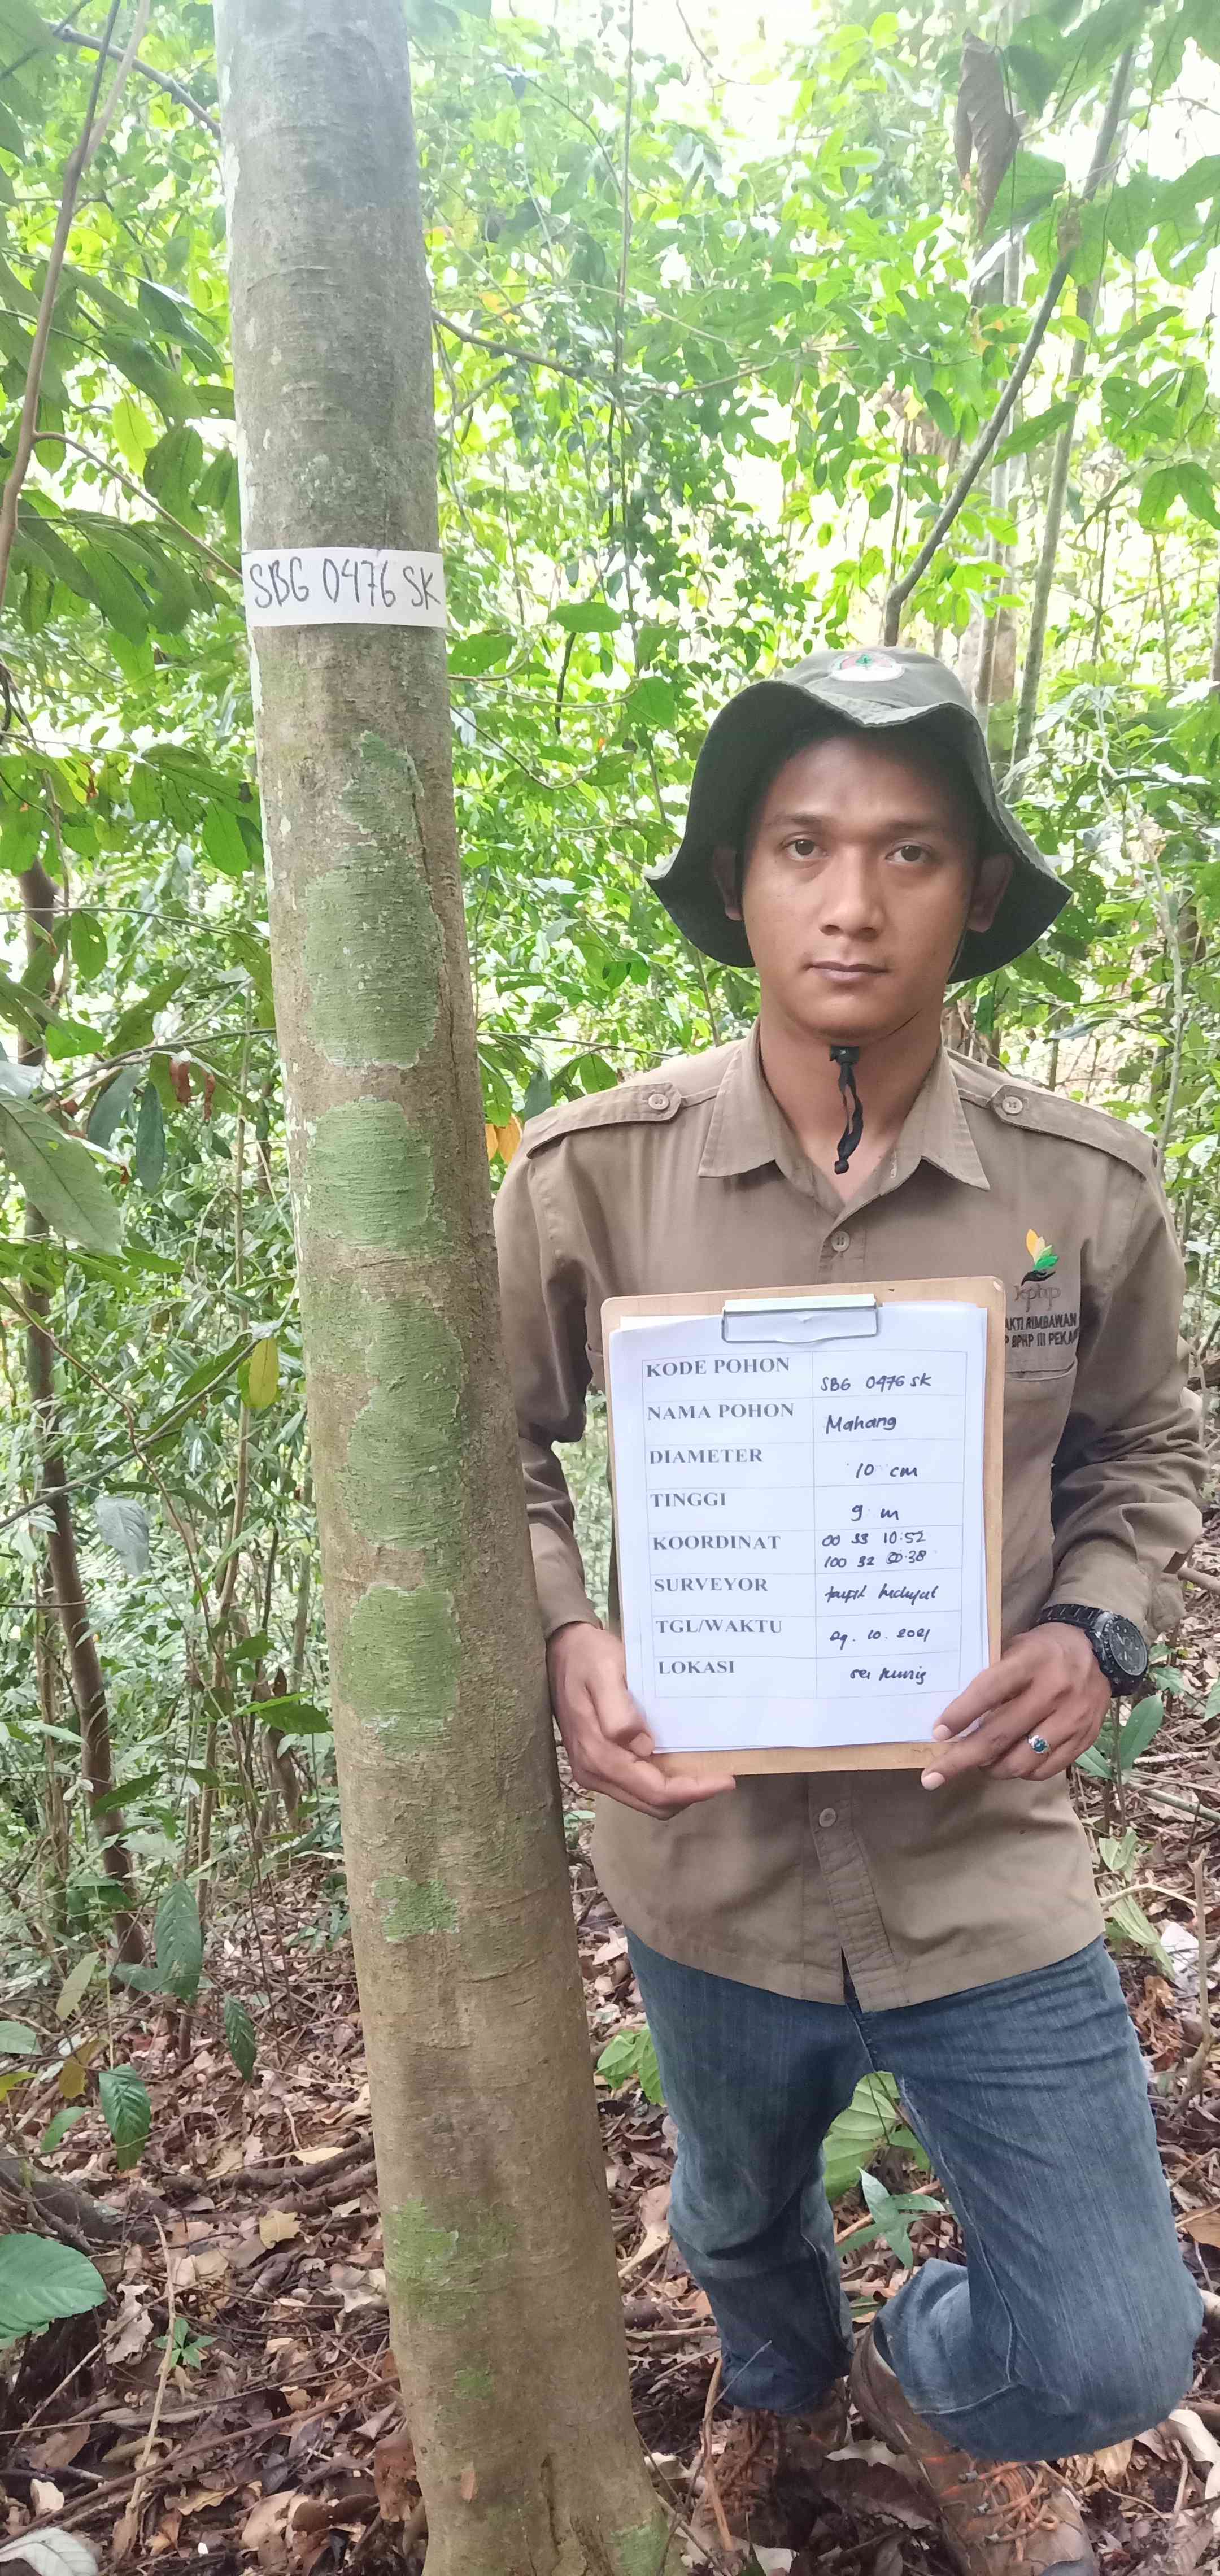 SBG 0476 SK
kphp
AKTI RIMBAWAN
P BPHP III PEKA
KODE POHON SBG 0476 SK
NAMA POHON Mahang
DIAMETER 10 cm
TINGGI 9 m
KOORDINAT 00 33 10.52
100 32 50.38
SURVEYOR taufik hidayat
TGL/WAKTU 29. 10. 2021
LOKASI sei kunig